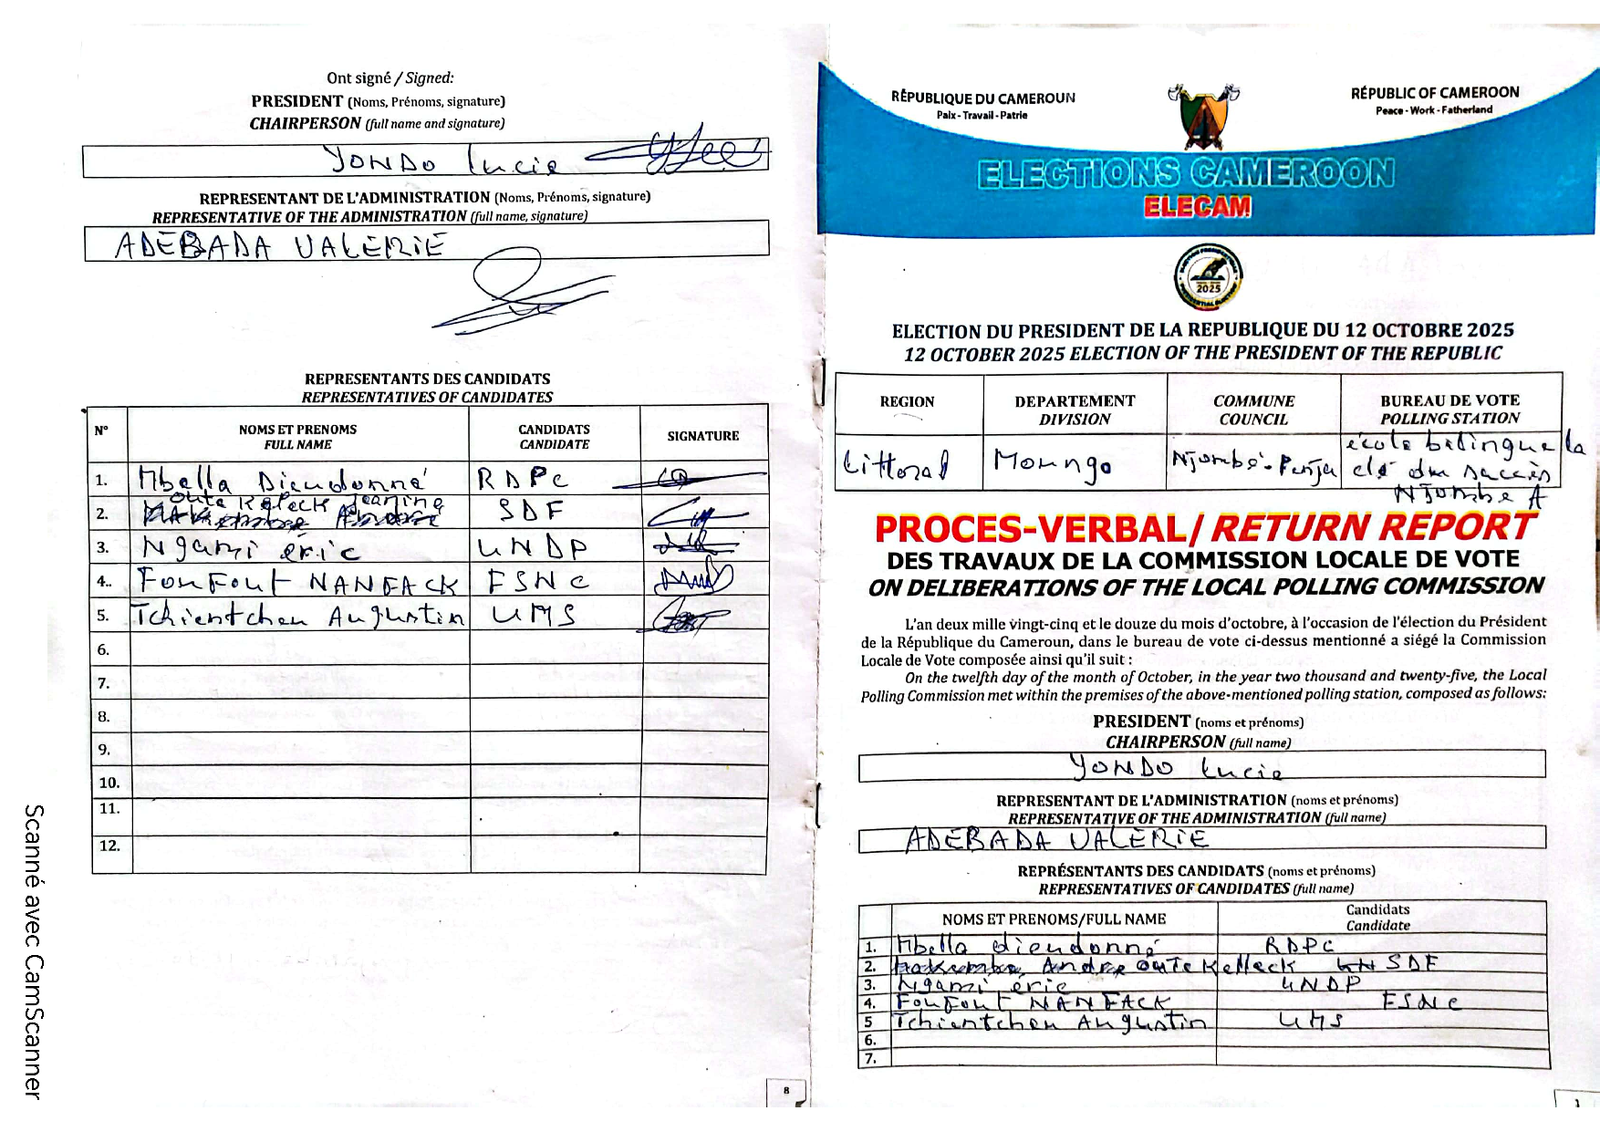 Ont signé / Signed:
PRESIDENT (Noms, Prénoms, signature)
CHAIRPERSON (full name and signature)
YONDO Lucie
REPRESENTANT DE L'ADMINISTRATION (Noms, Prénoms, signature)
REPRESENTATIVE OF THE ADMINISTRATION (full name, signature)
ADEBADA VALERIE
REPRESENTANTS DES CANDIDATS
REPRESENTATIVES OF CANDIDATES
N° NOMS ET PRENOMS FULL NAME CANDIDATS CANDIDATE SIGNATURE
1. Mbella Dieudonné RDPC
2. Oute Kelleck Jeanine SDF
3. Ngami éric UNDP
4. FouFout NANFACK FSNC
5. Tchientcheu Augustin UMS
6.
7.
8.
9.
10.
11.
12.
8
Scanné avec CamScanner
RÉPUBLIQUE DU CAMEROUN
Paix - Travail - Patrie
RÉPUBLIC OF CAMEROON
Peace - Work - Fatherland
ELECTIONS CAMEROON
ELECAM
2025
ELECTION DU PRESIDENT DE LA REPUBLIQUE DU 12 OCTOBRE 2025
12 OCTOBER 2025 ELECTION OF THE PRESIDENT OF THE REPUBLIC
REGION DEPARTEMENT DIVISION COMMUNE COUNCIL BUREAU DE VOTE POLLING STATION
Littoral Moungo Njombé-Penja école bilingue la
clé du succès
Njombe A
PROCES-VERBAL/ RETURN REPORT
DES TRAVAUX DE LA COMMISSION LOCALE DE VOTE
ON DELIBERATIONS OF THE LOCAL POLLING COMMISSION
L'an deux mille vingt-cinq et le douze du mois d'octobre, à l'occasion de l'élection du Président
de la République du Cameroun, dans le bureau de vote ci-dessus mentionné a siégé la Commission
Locale de Vote composée ainsi qu'il suit :
On the twelfth day of the month of October, in the year two thousand and twenty-five, the Local
Polling Commission met within the premises of the above-mentioned polling station, composed as follows:
PRESIDENT (noms et prénoms)
CHAIRPERSON (full name)
YONDO Lucie
REPRESENTANT DE L'ADMINISTRATION (noms et prénoms)
REPRESENTATIVE OF THE ADMINISTRATION (full name)
ADEBADA VALERIE
REPRÉSENTANTS DES CANDIDATS (noms et prénoms)
REPRESENTATIVES OF CANDIDATES (full name)
NOMS ET PRENOMS/FULL NAME Candidats Candidate
1. Mbella dieudonné RDPC
2. Andre Oute Kelleck SDF
3. Ngami éric UNDP
4. FouFout NANFACK FSNC
5 Tchientcheu Augustin UMS
6.
7.
1